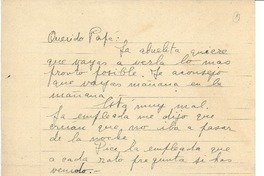 Querido Papá:
La abuelita quiere
que vayas a verla lo mas
pronto posible. Te aconsejo
que vayas mañana en la
mañana.
Está muy mal.
La empleada me dijo que
creian que no iba a pasar
de la noche.
Dice la empleada que
a cada rato pregunta si has
venido.-